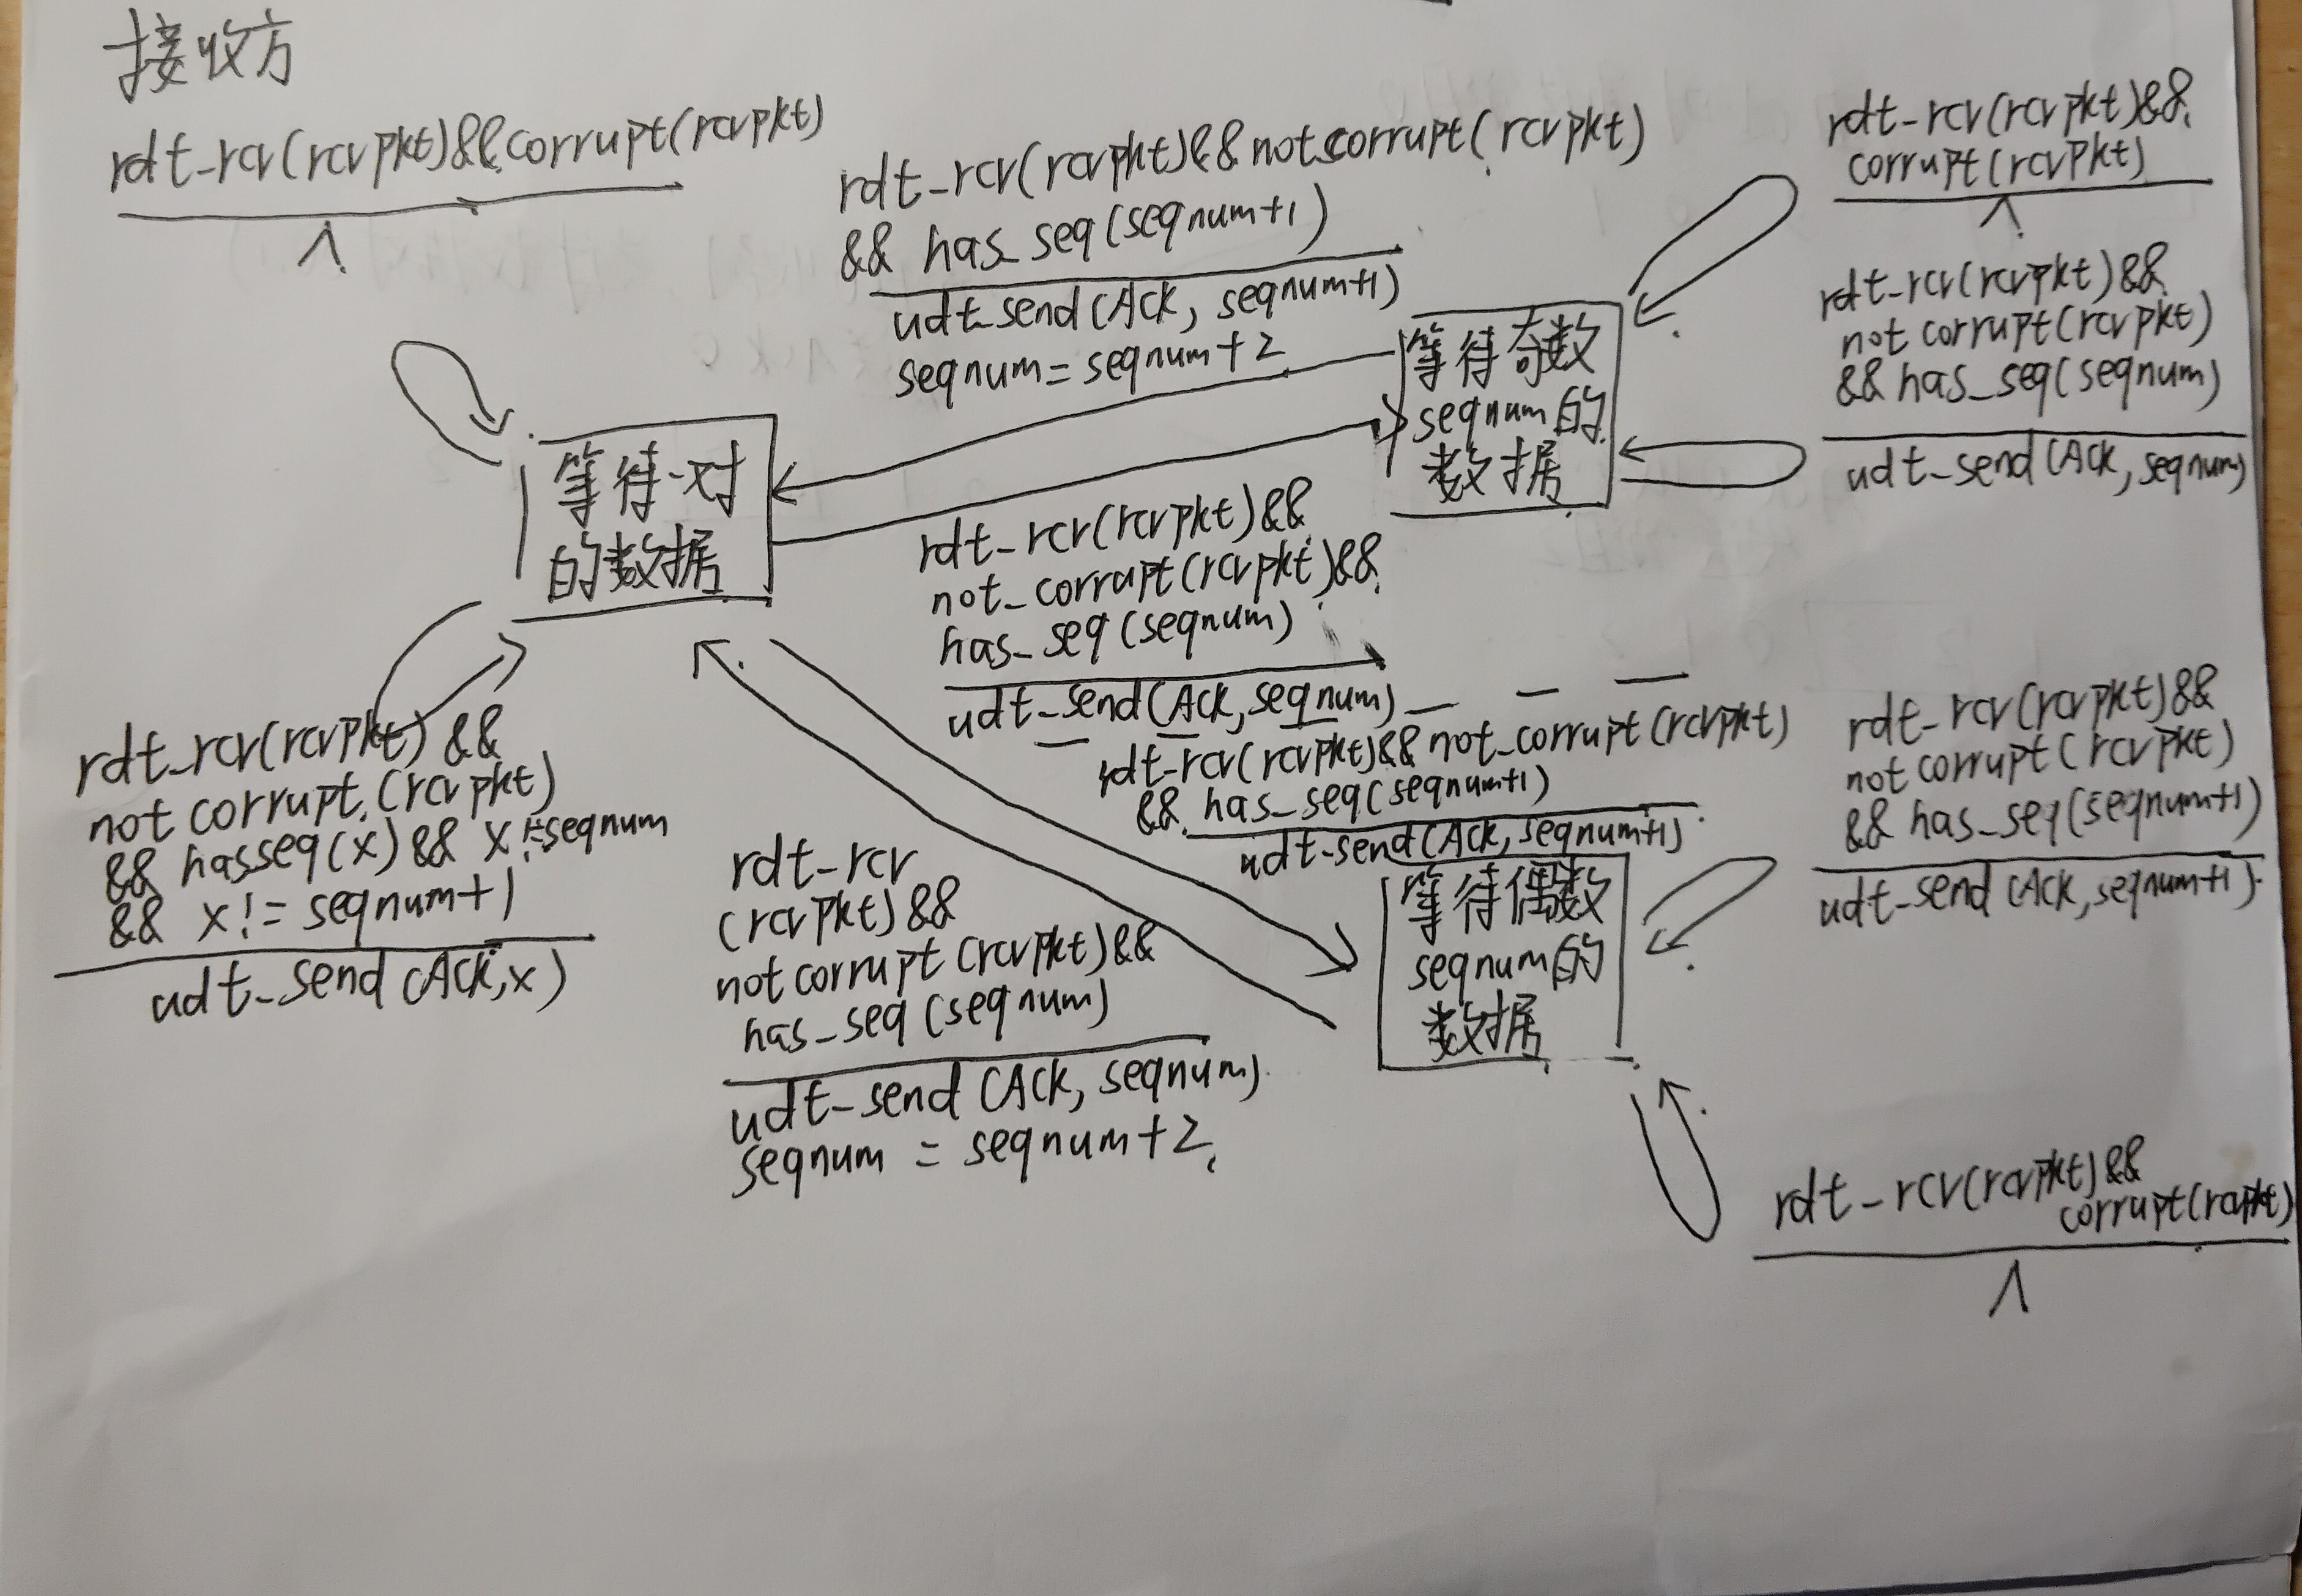 接收方
rdt_rcv(rcvpkt)&&corrupt(rcvpkt)
Λ
rdt_rcv(rcvpkt)&&not_corrupt(rcvpkt)
&& has_seq(seqnum+1)
udt_send(Ack, seqnum+1)
seqnum = seqnum+2
rdt_rcv(rcvpkt)&&
corrupt(rcvpkt)
Λ
rdt_rcv(rcvpkt)&&
not corrupt(rcvpkt)
&& has_seq(seqnum)
udt_send(Ack, seqnum)
等待奇数
seqnum的
数据
等待一对
的数据
rdt_rcv(rcvpkt)&&
not_corrupt(rcvpkt)&&
has_seq(seqnum)
udt_send(Ack, seqnum)
rdt_rcv(rcvpkt) &&
not corrupt(rcvpkt)
&& hasseq(x) && x!=seqnum
&& x!= seqnum+1
udt_send(Ack,x)
rdt_rcv(rcvpkt)&&not_corrupt(rcvpkt)
&& has_seq(seqnum+1)
udt_send(Ack, seqnum+1)
rdt_rcv(rcvpkt)&&
not corrupt(rcvpkt)
&& has_seq(seqnum+1)
udt_send(Ack, seqnum+1)
等待偶数
seqnum的
数据
rdt_rcv
(rcvpkt)&&
not corrupt(rcvpkt)&&
has_seq(seqnum)
udt_send(Ack, seqnum)
seqnum = seqnum+2
rdt_rcv(rcvpkt)&&
corrupt(rcvpkt)
Λ